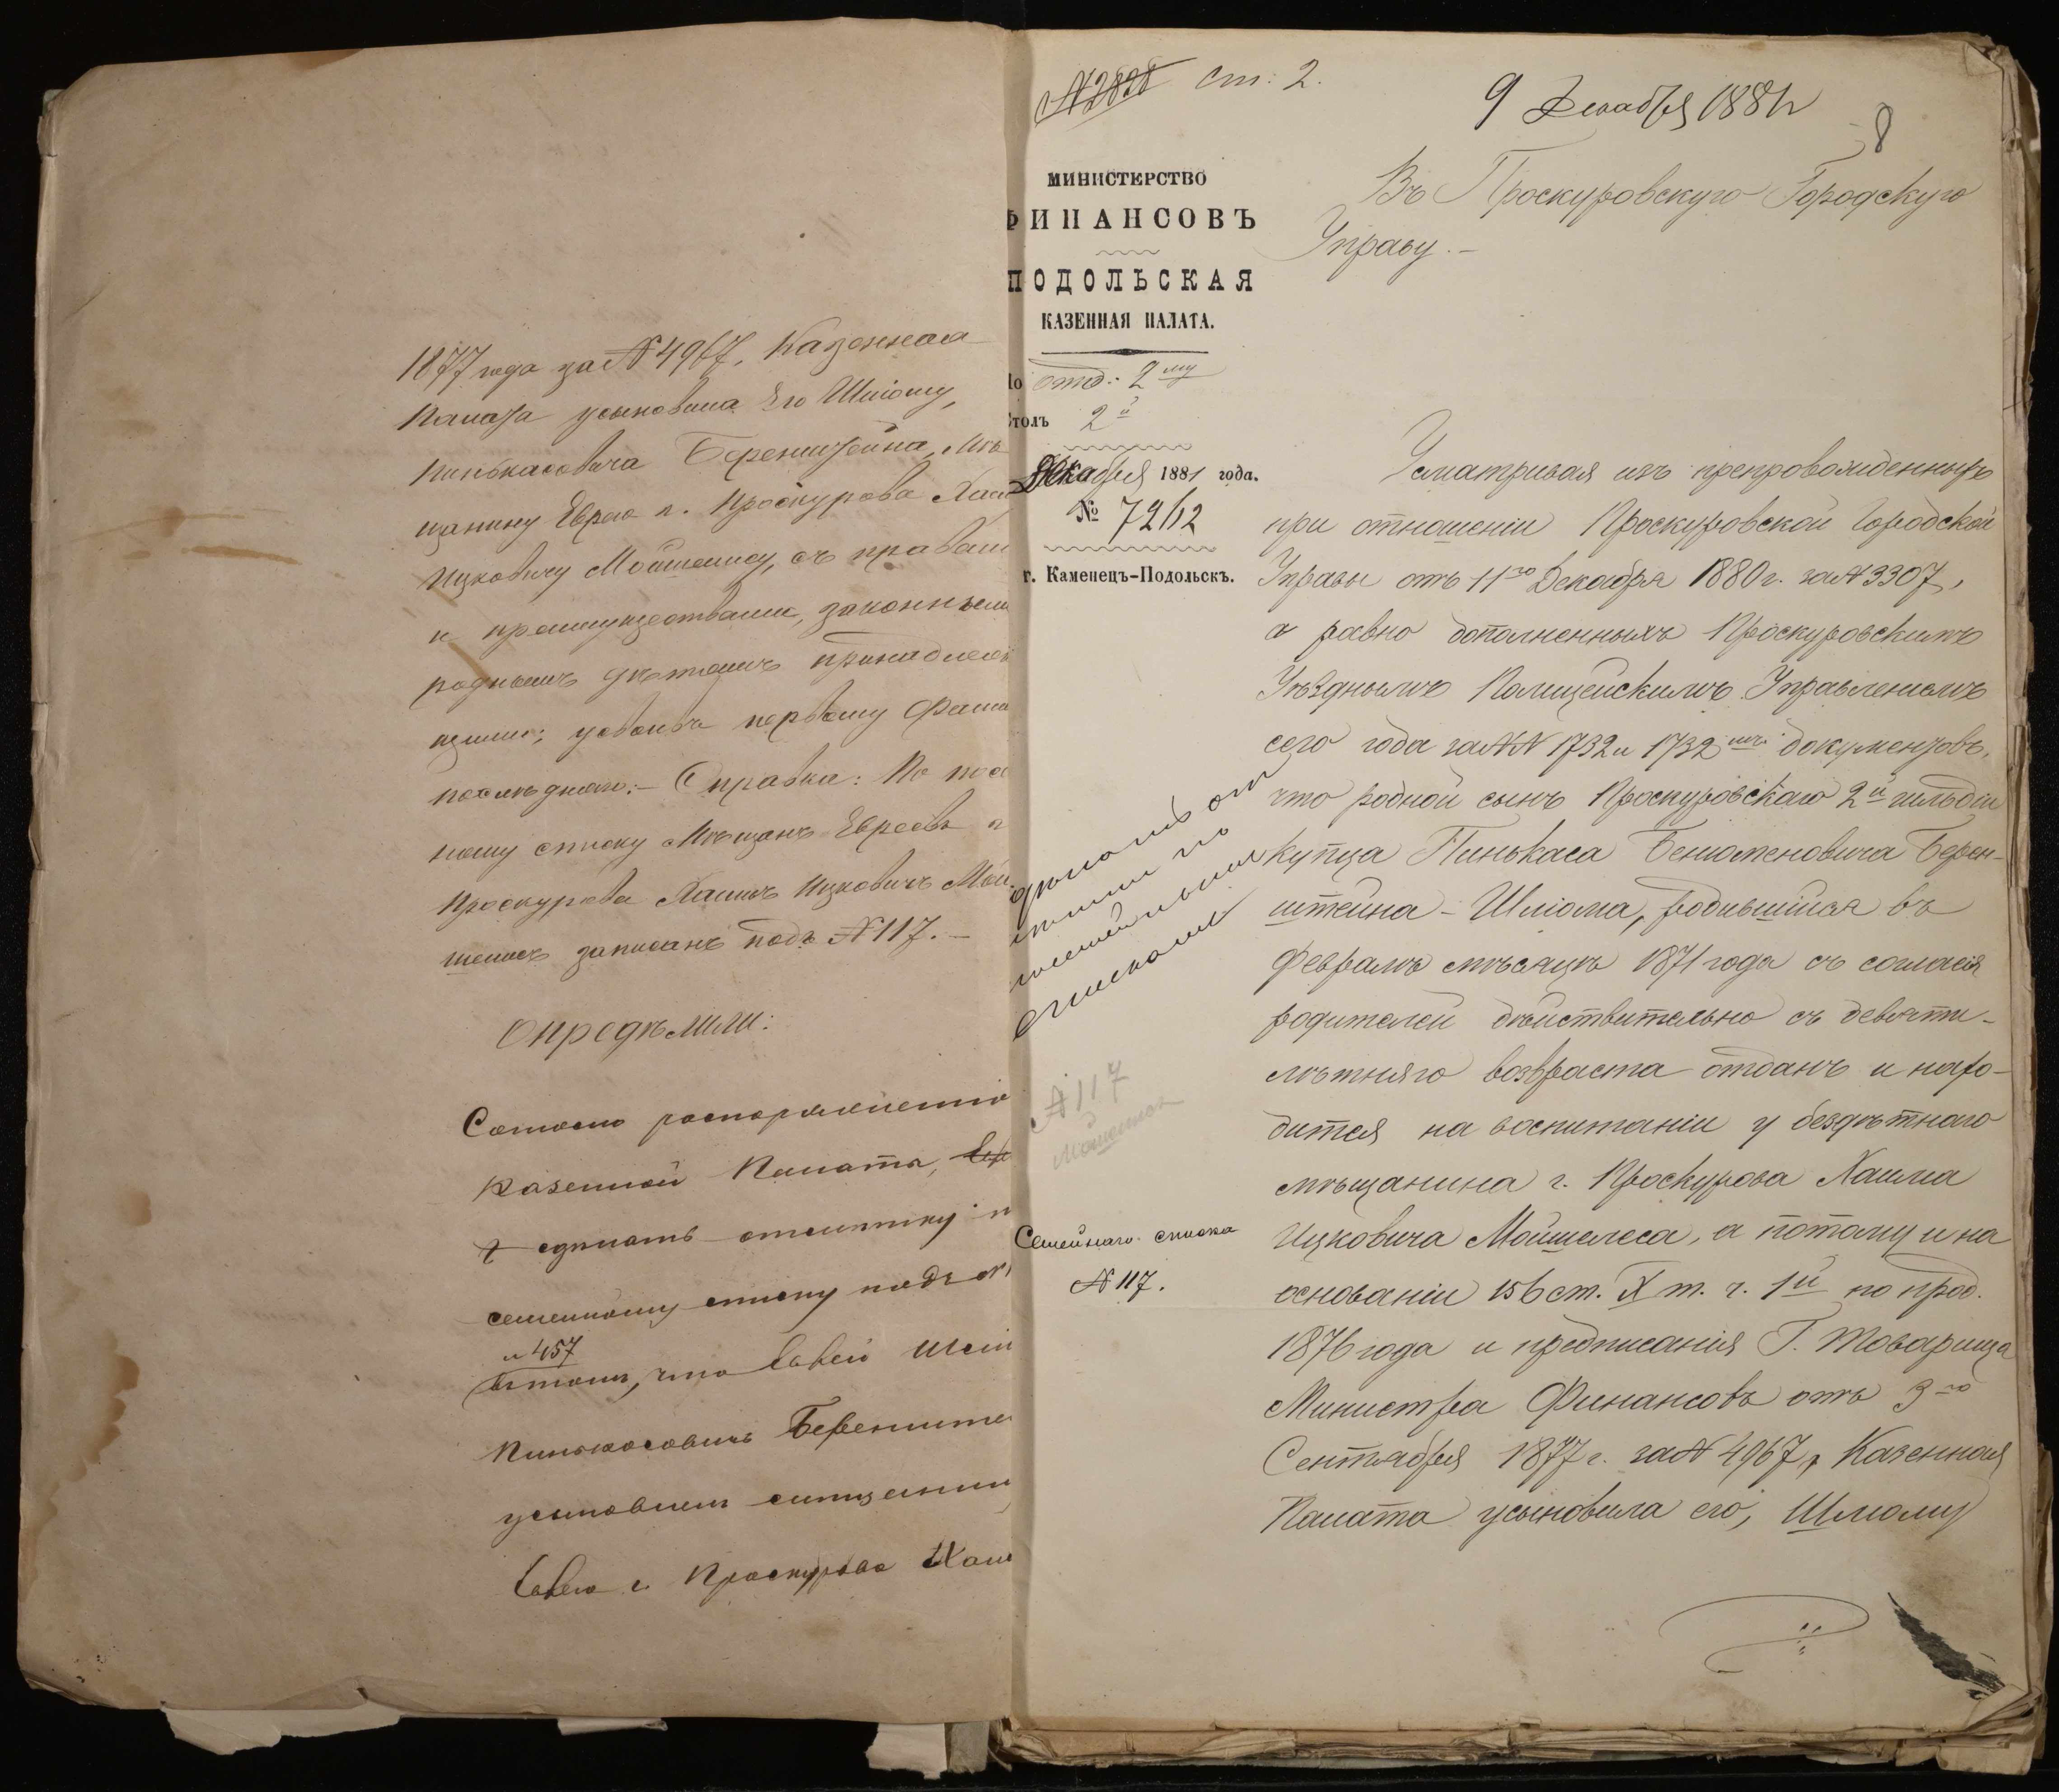 1877 года за № 4967, Казенная
Палата усыновила Его Шліому,
Пинькасовича Беренштейна, Мѣ
щанину Еврею г. Проскурова Хаи
Ицковичу Мойшелису, съ правами
и преимуществами, законнымъ
роднымъ дѣтямъ принадлежа
щими; усвоивъ первому фами
послѣдняго. – Справка: По посе
ному списку Мѣщанъ Евреевъ г
Проскурова Хаимъ Ицковичъ Мой
шелисъ записанъ подъ № 117. –
Опредѣлили:
Согласно распоряженію
Казенной Палаты,
сдѣлать отмѣтку п
семейному списку подъ №
и 457
въ томъ, что Еврей Шлі
Пинькасовичъ Беренште
усыновленъ мѣщанин
Евреем г. Проскурова Хаи
№ 2828 ст: 2.
9 Декабря 1881 г
8
МИНИСТЕРСТВО
ФИНАНСОВЪ
ПОДОЛЬСКАЯ
КАЗЕННАЯ ПАЛАТА.
По отд: 2му
Столъ 2й
Декабря 1881 года.
№ 7212
г. Каменецъ-Подольскъ.
сдѣлать от
мѣтки по
семейнымъ
спискамъ
№ 117
Мойшелисъ
Семейнаго списка
№ 117.
Въ Проскуровскую Городскую
Управу. –
Усматривая изъ препровожденныхъ
при отношеніи Проскуровской Городской
Управы отъ 11го Декабря 1880 г. за № 3307,
а равно дополненныхъ Проскуровскимъ
Уѣзднымъ Полицейскимъ Управленіемъ
сего года за №№ 1732 и 1732 документовъ,
что родной сынъ Проскуровскаго 2й гильдіи
купца Пинькаса Бенюменовича Берен-
штейна – Шліома, родившійся въ
Февралѣ мѣсяцѣ 1871 года съ согласія
родителей дѣйствительно съ девяти-
лѣтняго возвраста отданъ и нахо-
дится на воспитаніи у бездѣтнаго
мѣщанина г. Проскурова Хаима
Ицковича Мойшелеса, а потому и на
основаніи 156 ст. X т. ч. 1й по прод.
1876 года и предписанія Г. Товарища
Министра Финансовъ отъ 3го
Сентября 1877 г. за № 4967, Казенная
Палата усыновила его, Шліому